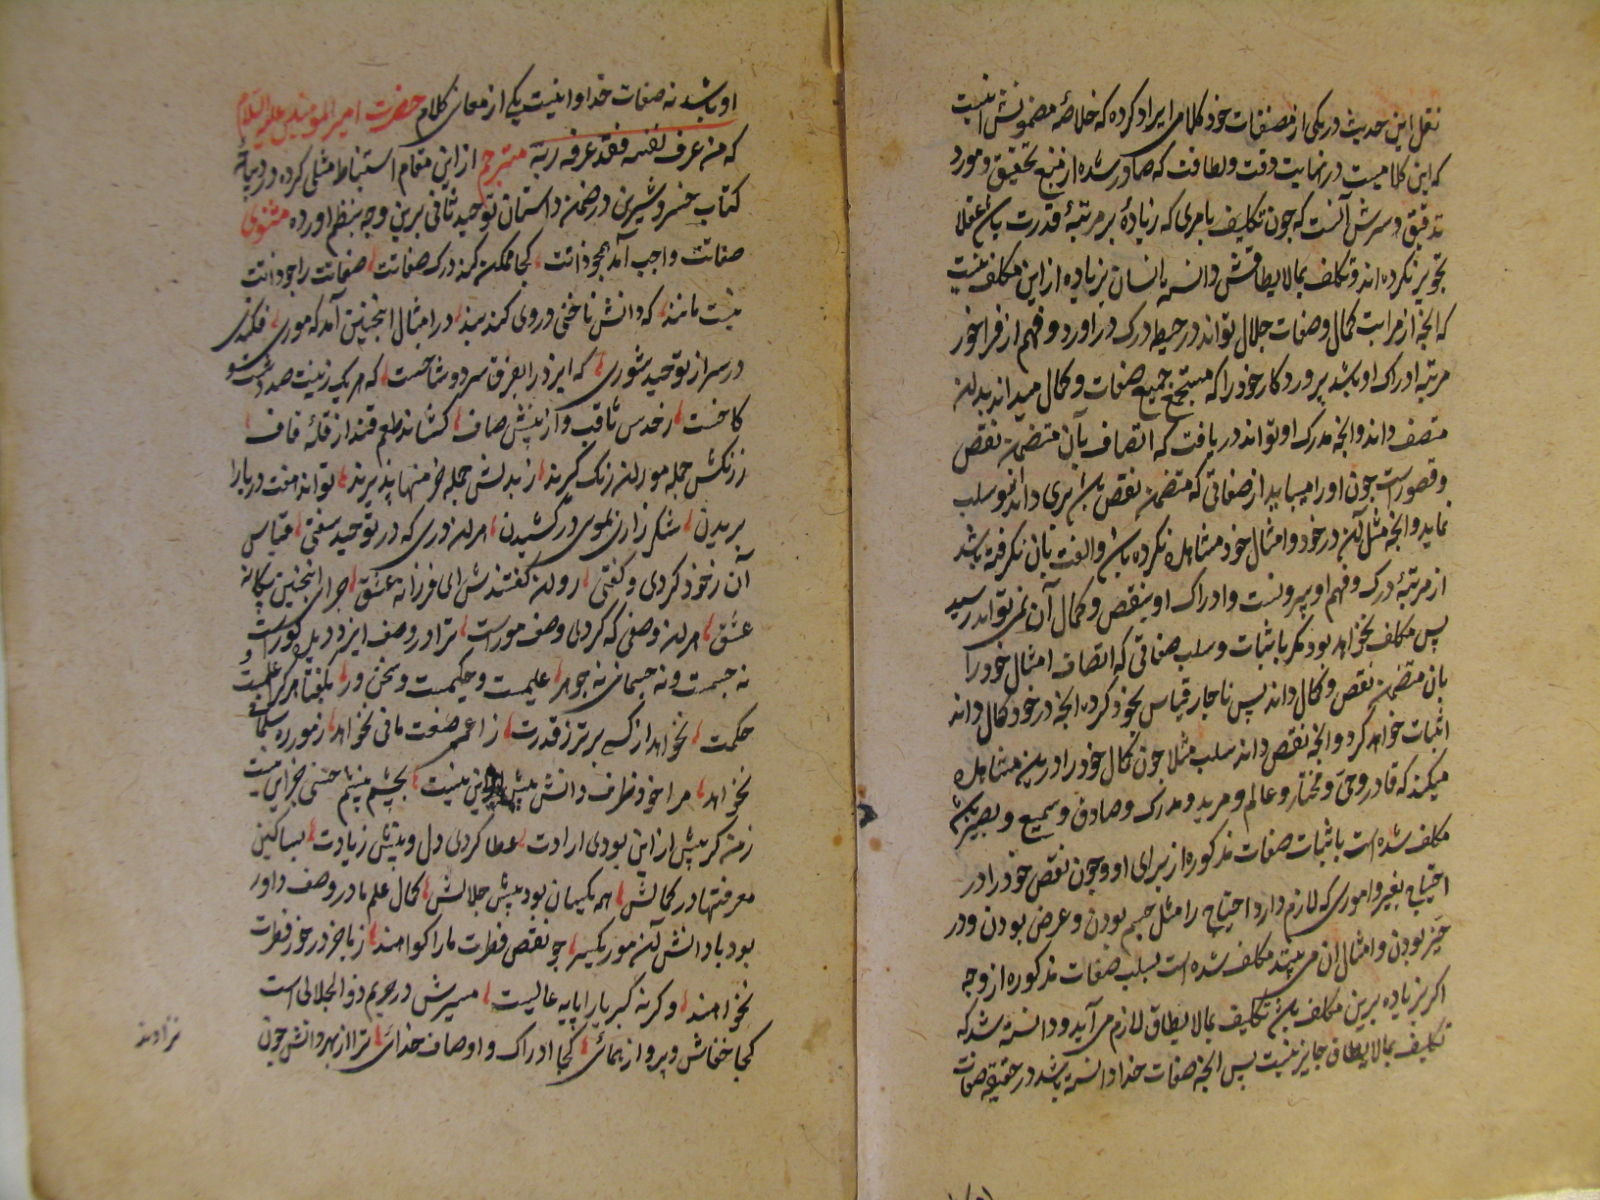 نقل این حدیث در یکی از مصنفات خود کلامی ایراد کرده که خلاصهٔ مضمونش اینست
که این کلامیست در نهایت دقت و لطافت که صادر شده از منبع تحقیق و مورد
تدقیق و سرش آنست که چون تکلیف بامری که زیاده بر مرتبهٔ قدرت باشد عقلا
تجویز نکرده اند و تکلیف بمالایطاقش دانسته انسان بزیاده از این مکلف نیست
که آنچه از مراتب کمال و صفات جلال تواند در حیطه درک دراورد و فهم از فراخور
مرتبه ادراک او باشد پروردکار خود را که مستجمع جمیع صفات و کمال میداند بدان
متصف داند و آنچه مدرک او تواند دریافت که اتصاف بآن متضمن نقص
و قصور است چون او را میباید از صفاتی که متضمن نقص باشد بری داند سلب
نماید و آنچه مثل آن در خود و امثال خود مشاهده نکرده باشد و الفت بان نکرفته باشد
از مرتبهٔ درک و فهم او بیرونست و ادراک او بنقص و کمال آن نمی تواند رسید
پس مکلف نخواهد بود مکر باثبات و سلب صفاتی که اتصاف امثال خود را
بان متضمن نقص و کمال داند پس ناچار قیاس بخود کرده آنچه در خود کمال داند
اثبات خواهد کرد و آنچه نقص داند سلب مثلا چون کمال خود را در این مشاهده
میکند که قادر و حی و مختار و عالم و مرید و مدرک و صادق و سمیع و بصیر باشد
مکلف شده است باثبات صفات مذکوره از برای او و چون نقص خود را در
احتیاج بغیر و اموری که لازم دارد احتیاج را مثل جسم بودن و عرض بودن و در
حیز بودن و امثال ان می بیند مکلف شده است بسلب صفات مذکوره از و چه
اکر بزیاده برین مکلف باشد تکلیف بمالایطاق لازم می آید و دانسته شد که
تکلیف بمالایطاق جایز نیست پس آنچه صفات خدا دانسته باشد در حقیقه صفات
او باشد نه صفات خدا و اینست یکی از معانی کلام حضرت امیر المومنین علیه السلام
که من عرف نفسه فقد عرف ربه مترجم از این مقام استنباط مثلی کرده و در دیباچهٔ
کتاب خسرو شیرین در ضمن داستان توحید ثانی برین وجه بنظم اورده مثنوی
صفاتت واجب آمد همچو ذاتت کجا ممکن کند درک صفاتت صفاتت را چو ذاتت
نیست مانند که دانش ناخنی در وی کند بند در امثال اینچنین آمد که موری فکندی
در سر از توحید شوری که ایزد را بفرق سر دو شاخست که هر یک زینت صد
کاخست ز حدس ثاقب و از بینش صاف کشاند طعم قند از قلهٔ قاف
ز زنکش جمله موران رنک کیرند ز بذلش جمله خرمنها پذیرند تواند هفت دریا را
بریدن شکر زاری بموی در کشیدن هر ان دری که در توحید سفتی قیاس
آن ز خود کردی و کفتی روان کفتندش ای فرزانه عشق چرا اینچنین بیکانه
عشق هر ان وصفی که کردی وصف مور است ترا در وصف ایزد دیده کور است
نه جسمست و نه جسمانی نه جوهر علیمست و حکیمست و سخن ور بکفتا هر کرا علمست و
حکمت نخواهد از کسی برتر ز قدرت ز اعمی صنعت مانی نخواهد ز مور رده سلیمانی
نخواهد مرا خود ظرف دانش بیش ازین نیست بچشم بینشم حسنی جز این نیست
ز من کر بیش از این بودی ارادت عطا کردی دل و بینش زیادت بسا کین
معرفتها در کمالش همه یکسان بود پیش جلالش کمال علم ما در وصف داور
بود با دانش آن مور یکسر چو نقص فطرت ما را کواهند ز ما جز در خور فطرت
نخواهند و کر نه کبریا را پایه عالیست مسیرش در حریم ذو الجلالی است
کجا خفاش و پرواز همائی کجا ادراک و اوصاف خدائی ترا از بهر دانش چون